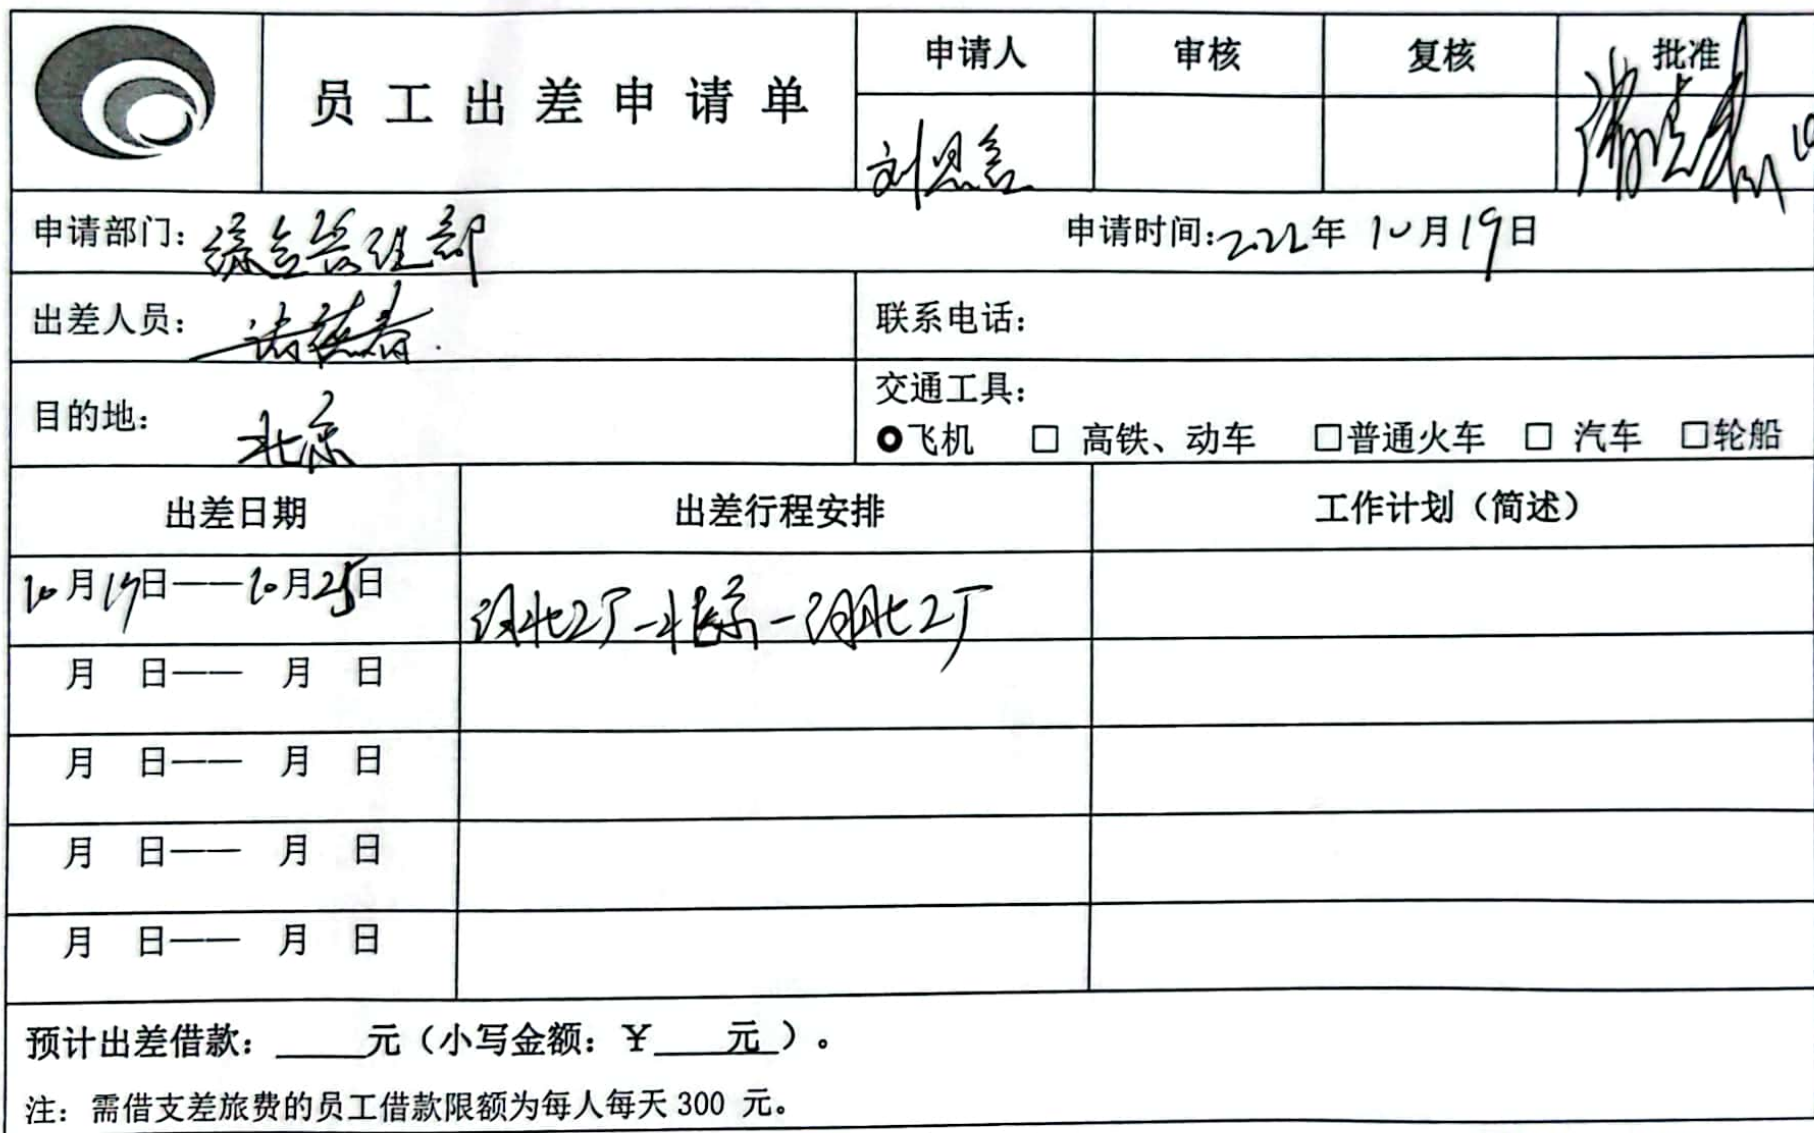 员工出差申请单
申请人 审核 复核 批准
申请部门: 综合管理部 申请时间:2022年 10月19日
出差人员: 联系电话:
目的地: 北京 交通工具:
飞机 □ 高铁、动车 □普通火车 □ 汽车 □轮船
出差日期 出差行程安排 工作计划（简述）
10月19日——10月25日 河北工厂-北京-河北工厂
月 日—— 月 日
月 日—— 月 日
月 日—— 月 日
月 日—— 月 日
预计出差借款: 元（小写金额: ¥ 元）。
注: 需借支差旅费的员工借款限额为每人每天 300 元。